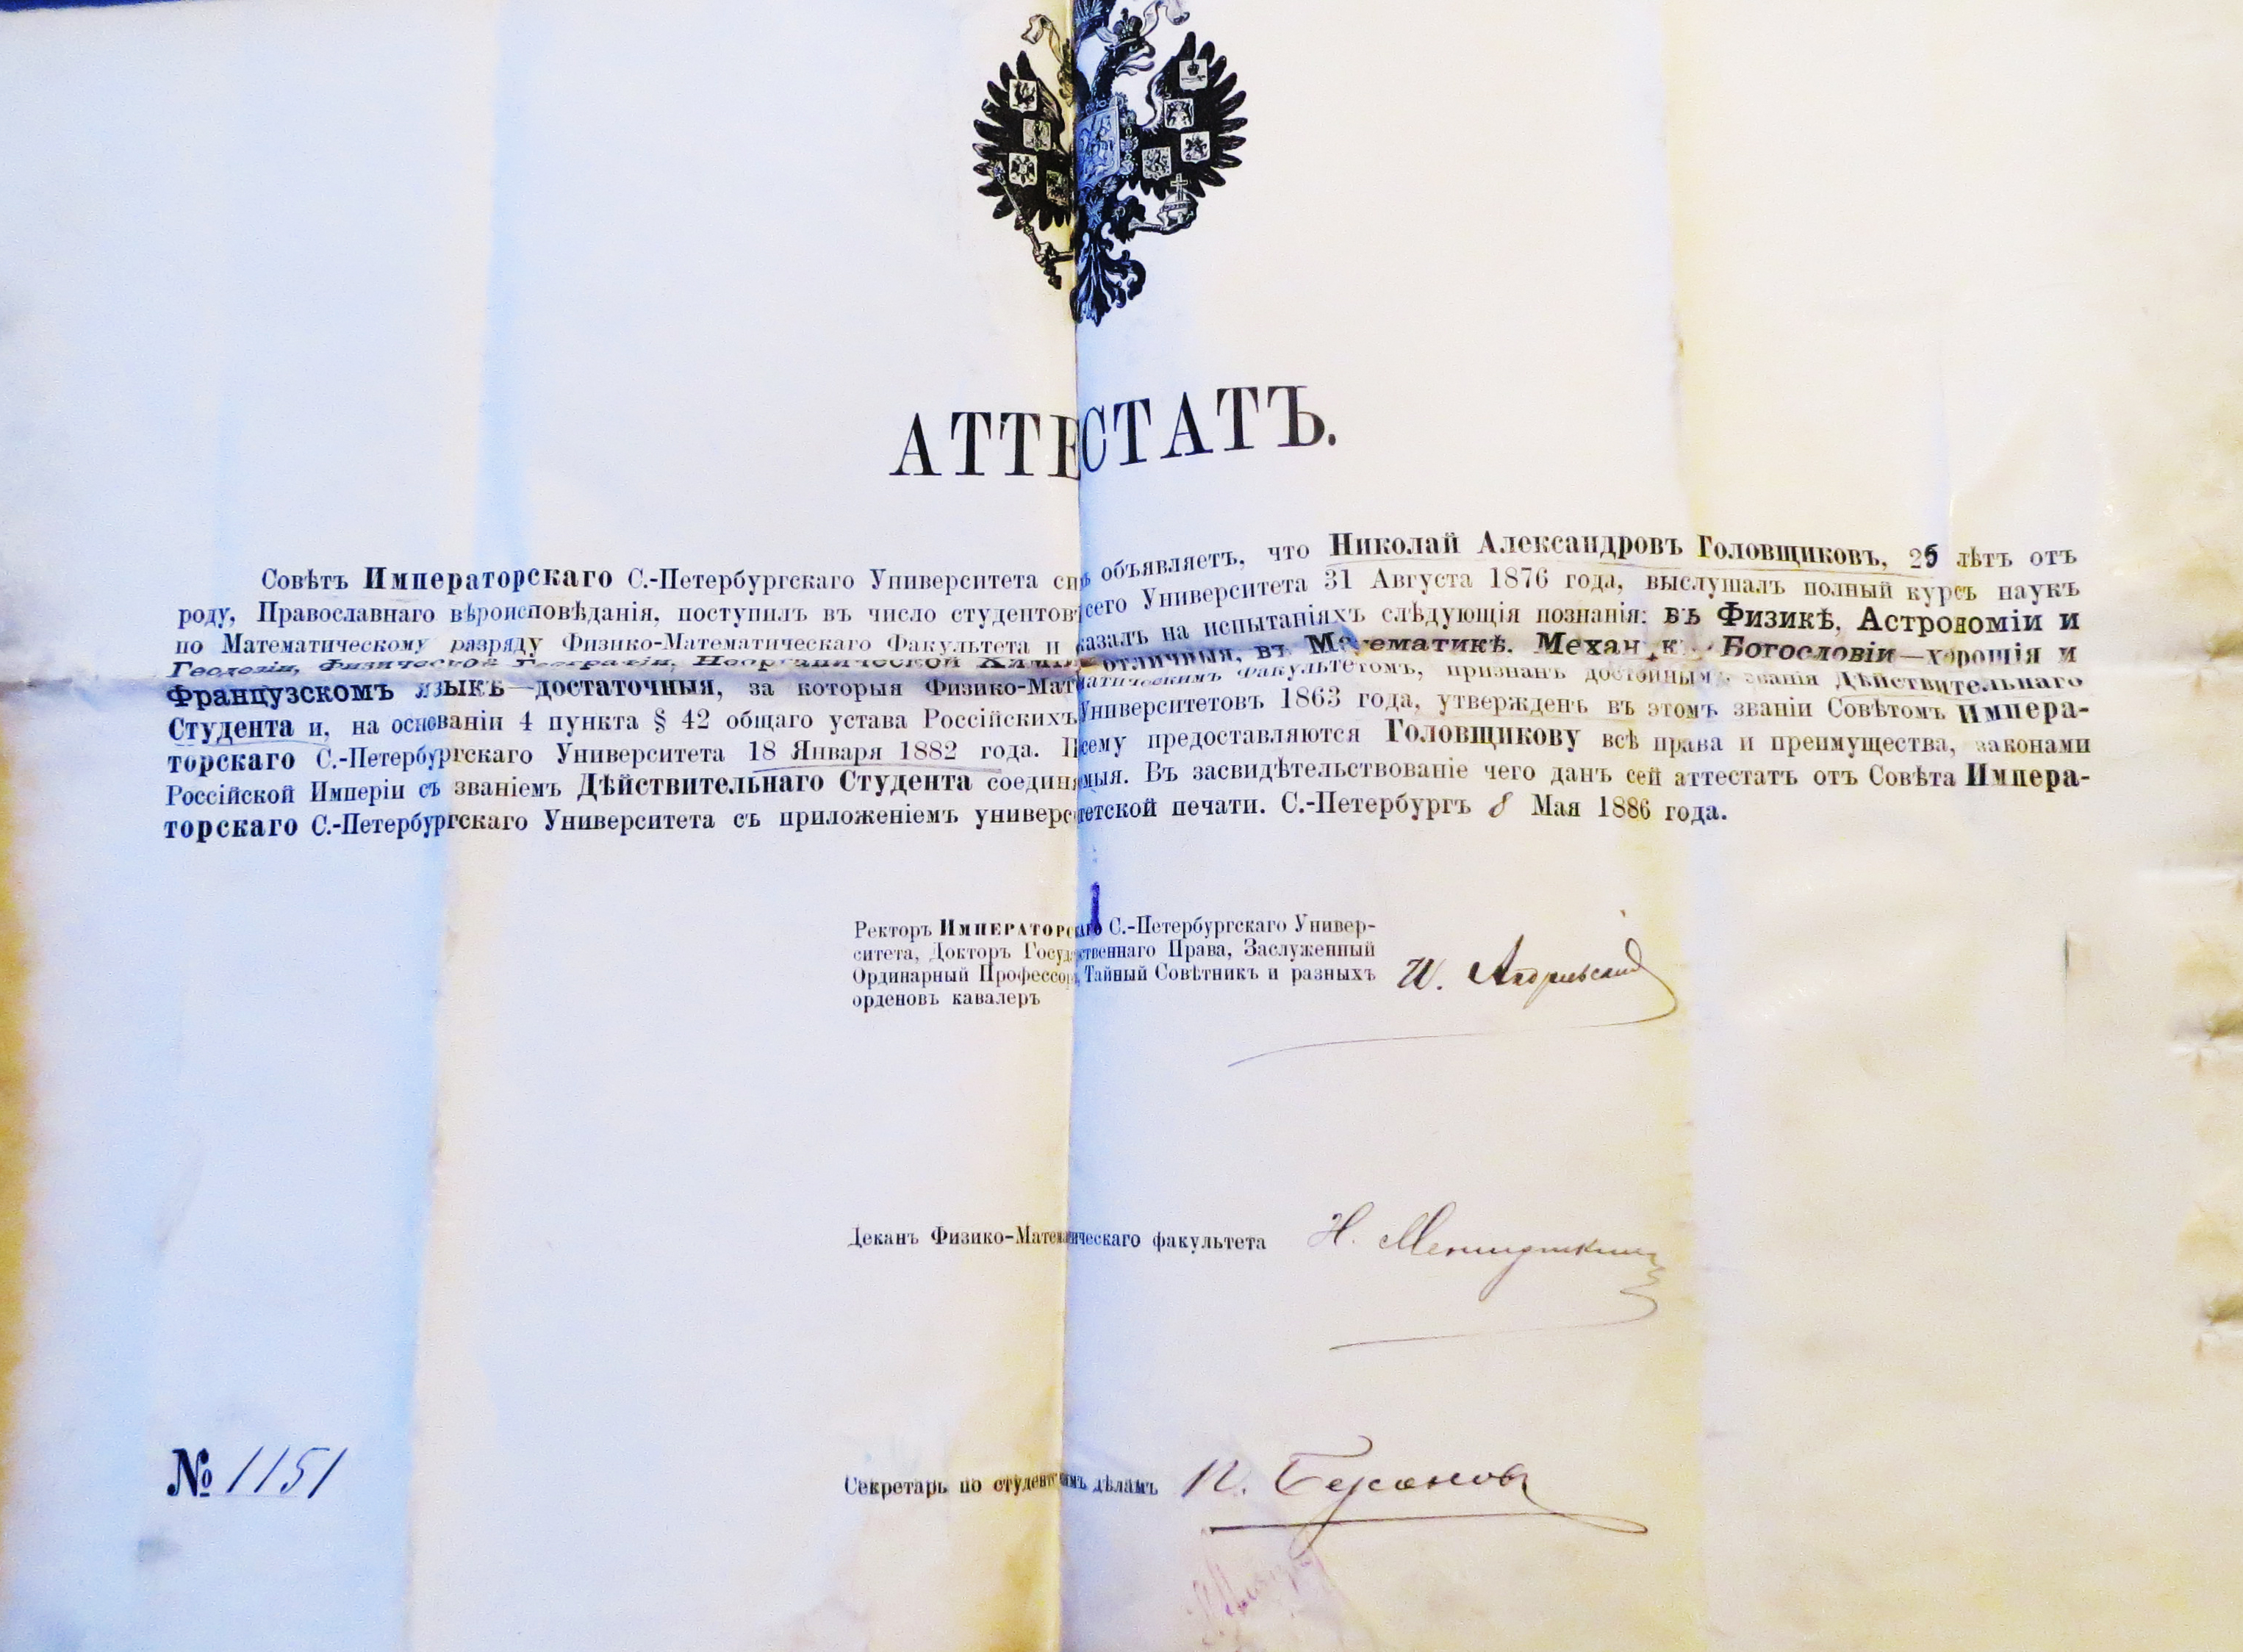 АТТЕСТАТЪ.
Совѣтъ Императорскаго С.-Петербургскаго Университета симъ объявляетъ, что Николай Александровъ Головщиковъ, 26 лѣтъ отъ
роду, Православнаго вѣроисповѣданія, поступилъ въ число студентовъ сего Университета 31 Августа 1876 года, выслушалъ полный курсъ наукъ
по Математическому разряду Физико-Математическаго Факультета и показалъ на испытаніяхъ слѣдующія познанія: въ Физикѣ, Астрономіи и
Геодезіи, Физической Географіи, Неорганической Химіи—отличныя, въ Математикѣ, Механикѣ, Богословіи—хорошія и
Французскомъ языкѣ—достаточныя, за которыя Физико-Математическимъ Факультетомъ, признанъ достойнымъ званія Дѣйствительнаго
Студента и, на основаніи 4 пункта § 42 общаго устава Россійскихъ Университетовъ 1863 года, утвержденъ въ этомъ званіи Совѣтомъ Импера-
торскаго С.-Петербургскаго Университета 18 Января 1882 года. Посему предоставляются Головщикову всѣ права и преимущества, законами
Россійской Имперіи съ званіемъ Дѣйствительнаго Студента соединяемыя. Въ засвидѣтельствованіе чего данъ сей аттестатъ отъ Совѣта Импера-
торскаго С.-Петербургскаго Университета съ приложеніемъ университетской печати. С.-Петербургъ 8 Мая 1886 года.
Ректоръ ИМПЕРАТОРСКАГО С.-Петербургскаго Универ-
ситета, Докторъ Государственнаго Права, Заслуженный
Ординарный Профессоръ, Тайный Совѣтникъ и разныхъ
орденовъ кавалеръ
И. Андреевскій
Деканъ Физико-Математическаго факультета Н. Меншуткинъ
№ 1151
Секретарь по студентскимъ дѣламъ